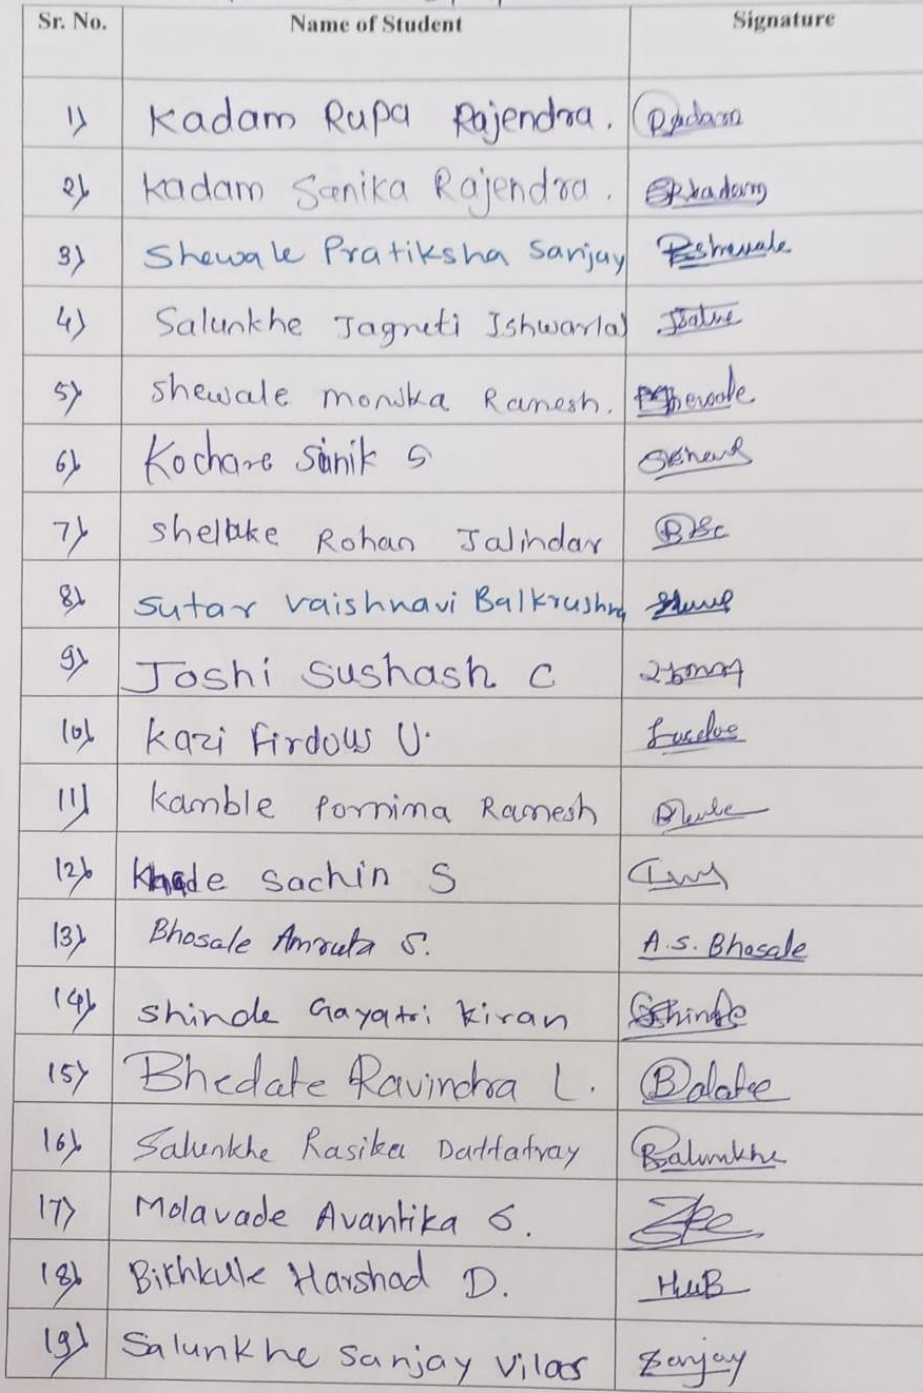 Sr. No. Name of Student Signature
1) Kadam Rupa Rajendra.
2) Kadam Sanika Rajendra. SRkadam
3) Shewale Pratiksha Sanjay Pshewale
4) Salunkhe Jagruti Ishwarlal
5) Shewale Monika Ramesh.
6) Kochare Sanik S
7) Shelake Rohan Jalindar
8) Sutar Vaishnavi Balkrushna
9) Joshi Sushash C
10) Kazi Firdous U.
11) Kamble Pornima Ramesh
12) Khade Sachin S
13) Bhosale Amruta S. A.S. Bhosale
14) Shinde Gayatri Kiran GShinde
15) Bhedate Ravindra L.
16) Salunkhe Rasika Dattatray RSalunkhe
17) Molavade Avantika S.
18) Bichkule Harshad D.
19) Salunkhe Sanjay Vilas Sanjay